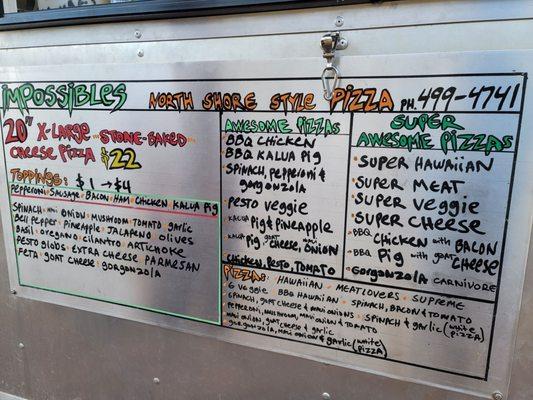 Impossibles North Shore Style Pizza PH. 499-4741
20" X-Large Stone-Baked
Cheese Pizza $22
Toppings: $1 → $4
Pepperoni Sausage Bacon Ham Chicken Kalua Pig
Spinach Maui Onion Mushroom Tomato Garlic
Bell Pepper Pineapple Jalapeno Olives
Basil Oregano Cilantro Artichoke
Pesto Globs Extra Cheese Parmesan
Feta Goat Cheese Gorgonzola
Awesome Pizzas
BBQ Chicken
BBQ Kalua Pig
Spinach, Pepperoni &
Gorgonzola
Pesto Veggie
Kalua Pig & Pineapple
Kalua Pig, Goat Cheese, Maui Onion
Chicken, Pesto, Tomato
Super
Awesome Pizzas
Super Hawaiian
Super Meat
Super Veggie
Super Cheese
BBQ Chicken with Bacon
BBQ Pig with Goat Cheese
Gorgonzola Carnivore
Pizzas: Hawaiian Meatlovers Supreme
6 Veggie BBQ Hawaiian Spinach, Bacon & Tomato
Spinach, Goat Cheese & Maui Onions Spinach & Garlic (White Pizza)
Pepperoni, Mushroom, Maui Onion & Tomato
Maui Onion, Goat Cheese & Garlic
Gorgonzola, Maui Onion & Garlic (White Pizza)